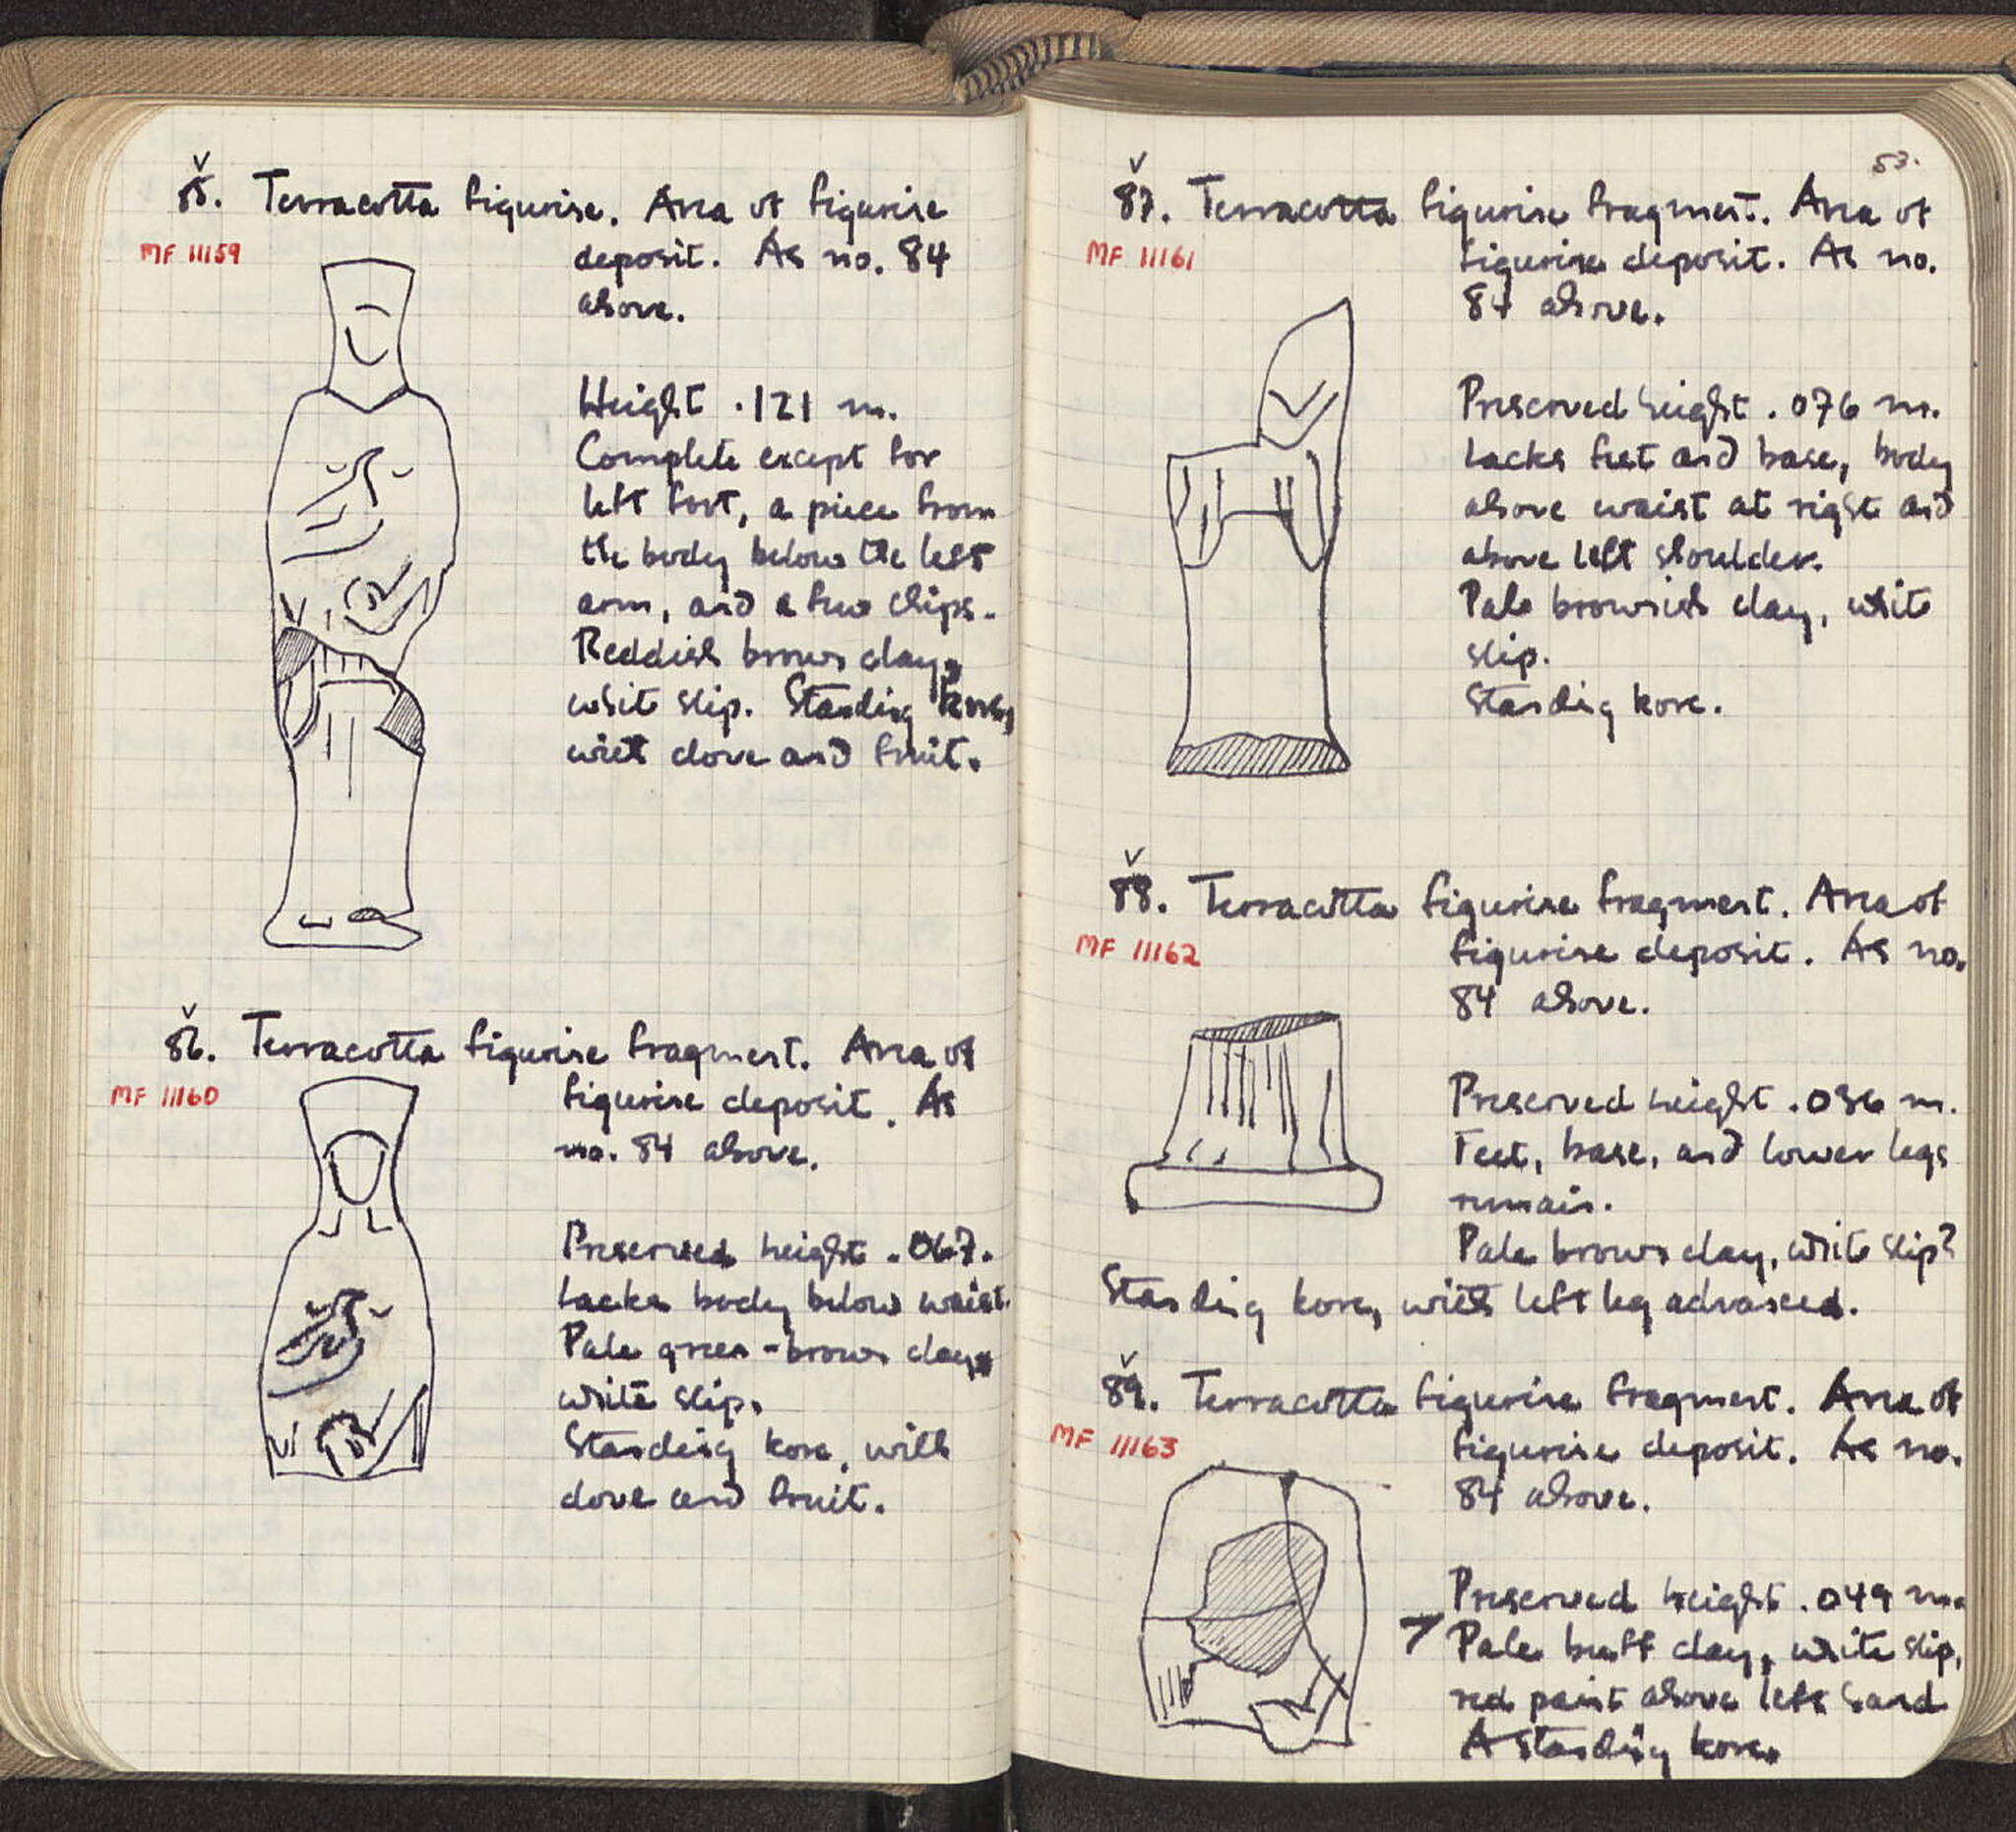 85. Terracotta figurine. Area of figurine
MF 11159
deposit. As no. 84
above.
Height .121 m.
Complete except for
left foot, a piece from
the body below the left
arm, and a few chips.
Reddish brown clay,
white slip. Standing kore,
with dove and fruit.
86. Terracotta figurine fragment. Area of
MF 11160
figurine deposit. As
no. 84 above.
Preserved height .067.
Lacks body below waist.
Pale green-brown clay,
white slip.
Standing kore, with
dove and fruit.
53.
87. Terracotta figurine fragment. Area of
MF 11161
figurine deposit. As no.
84 above.
Preserved height .076 m.
Lacks feet and base, body
above waist at right and
above left shoulder.
Pale brownish clay, white
slip.
Standing kore.
88. Terracotta figurine fragment. Area of
MF 11162
figurine deposit. As no.
84 above.
Preserved height .036 m.
Feet, base, and lower legs
remain.
Pale brown clay, white slip?
Standing kore, with left leg advanced.
89. Terracotta figurine fragment. Area of
MF 11163
figurine deposit. As no.
84 above.
Preserved height .049 m.
Pale buff clay, white slip,
red paint above left hand
A standing kore.